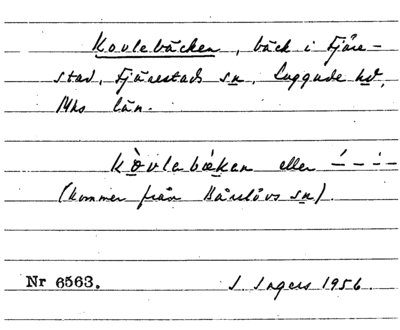 Kovlebäcken, bäck i Fjäre-
stad, Fjärestads sn, Luggude hd,
Mhs län.
kòvlabækan eller
(kommer från Härslövs sn).
Nr 6563. I. Ingers 1956.